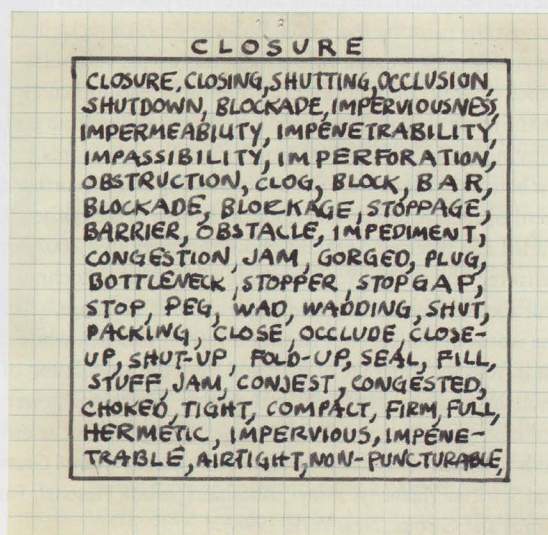 CLOSURE
CLOSURE, CLOSING, SHUTTING, OCCLUSION,
SHUTDOWN, BLOCKADE, IMPERVIOUSNESS,
IMPERMEABILITY, IMPENETRABILITY,
IMPASSIBILITY, IMPERFORATION,
OBSTRUCTION, CLOG, BLOCK, BAR,
BLOCKADE, BLOCKAGE, STOPPAGE,
BARRIER, OBSTACLE, IMPEDIMENT,
CONGESTION, JAM, GORGED, PLUG,
BOTTLENECK, STOPPER, STOPGAP,
STOP, PEG, WAD, WADDING, SHUT,
PACKING, CLOSE, OCCLUDE, CLOSE-
UP, SHUT-UP, FOLD-UP, SEAL, FILL,
STUFF, JAM, CONJEST, CONGESTED,
CHOKED, TIGHT, COMPACT, FIRM, FULL,
HERMETIC, IMPERVIOUS, IMPENE-
TRABLE, AIRTIGHT, NON-PUNCTURABLE,